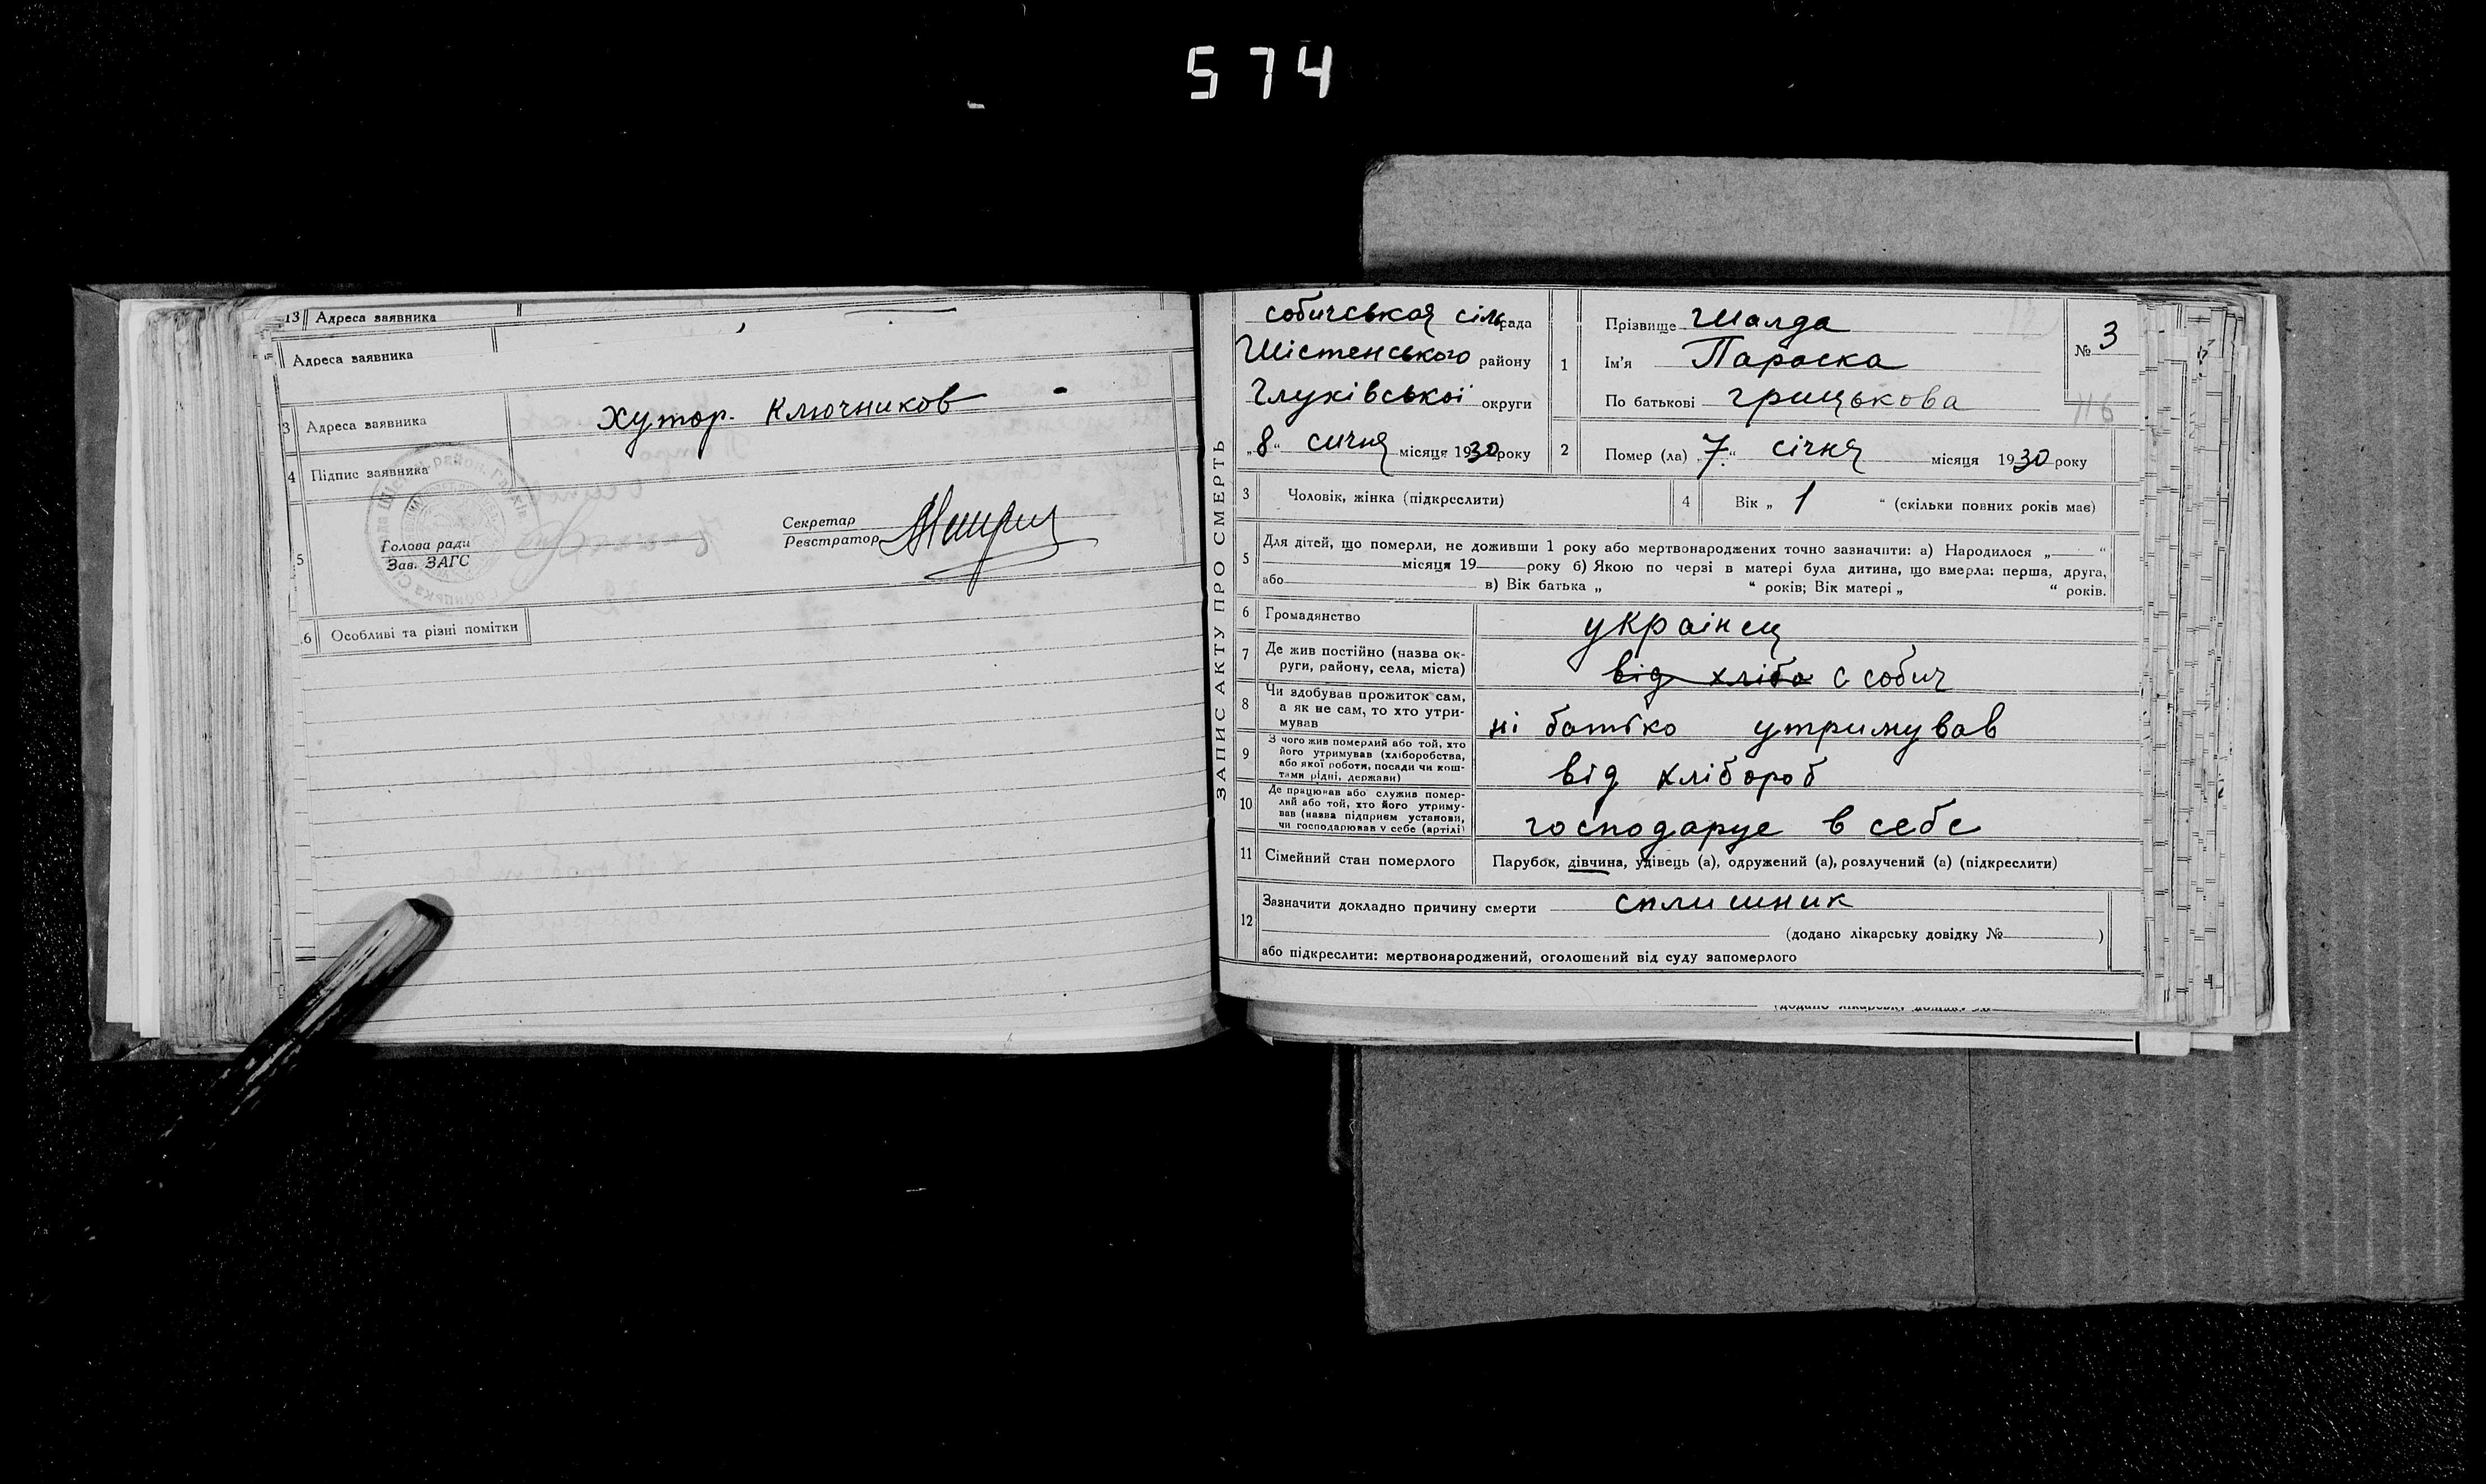 574
13 Адреса заявника
Адреса заявника
3 Адреса заявника Хутор. Ключников
4 Підпис заявника
5 Голова ради
Зав. ЗАГС
Секретар
Реєстратор
6 Особливі та різні помітки
ЗАПИС АКТУ ПРО СМЕРТЬ
собичськая сільрада
Шістенського району
Глухівськоі округи
„8“ сичня місяця 1930 року
1 Прізвище Шалда
Ім'я Параска
По батькові грицькова
№ 3
116
2 Помер (ла) „7“ січня місяця 1930 року
3 Чоловік, жінка (підкреслити)
4 Вік „ 1 “ (скільки повних років має)
5 Для дітей, що померли, не доживши 1 року або мертвонароджених точно зазначити: а) Народилося „ “
місяця 19 року б) Якою по черзі в матері була дитина, що вмерла: перша, друга,
або в) Вік батька „ “ років; Вік матері „ “ років.
6 Громадянство украінец
7 Де жив постійно (назва ок-
руги, району, села, міста) від хліба с собич
8 Чи здобував прожиток сам,
а як не сам, то хто утри-
мував ні батько утримував
9 З чого жив померлий або той, хто
його утримував (хліборобства,
або якої роботи, посади чи кош-
тами рідні, держави) від хлібороб
10 Де працював або служив помер-
лий або той, хто його утриму-
вав (назва підприєм установи,
чи господарював у себе (артілі) господарує в себе
11 Сімейний стан померлого Парубок, дівчина, удівець (а), одружений (а), розлучений (а) (підкреслити)
12 Зазначити докладно причину смерти сплишник
(додано лікарську довідку № )
або підкреслити: мертвонароджений, оголошений від суду запомерлого